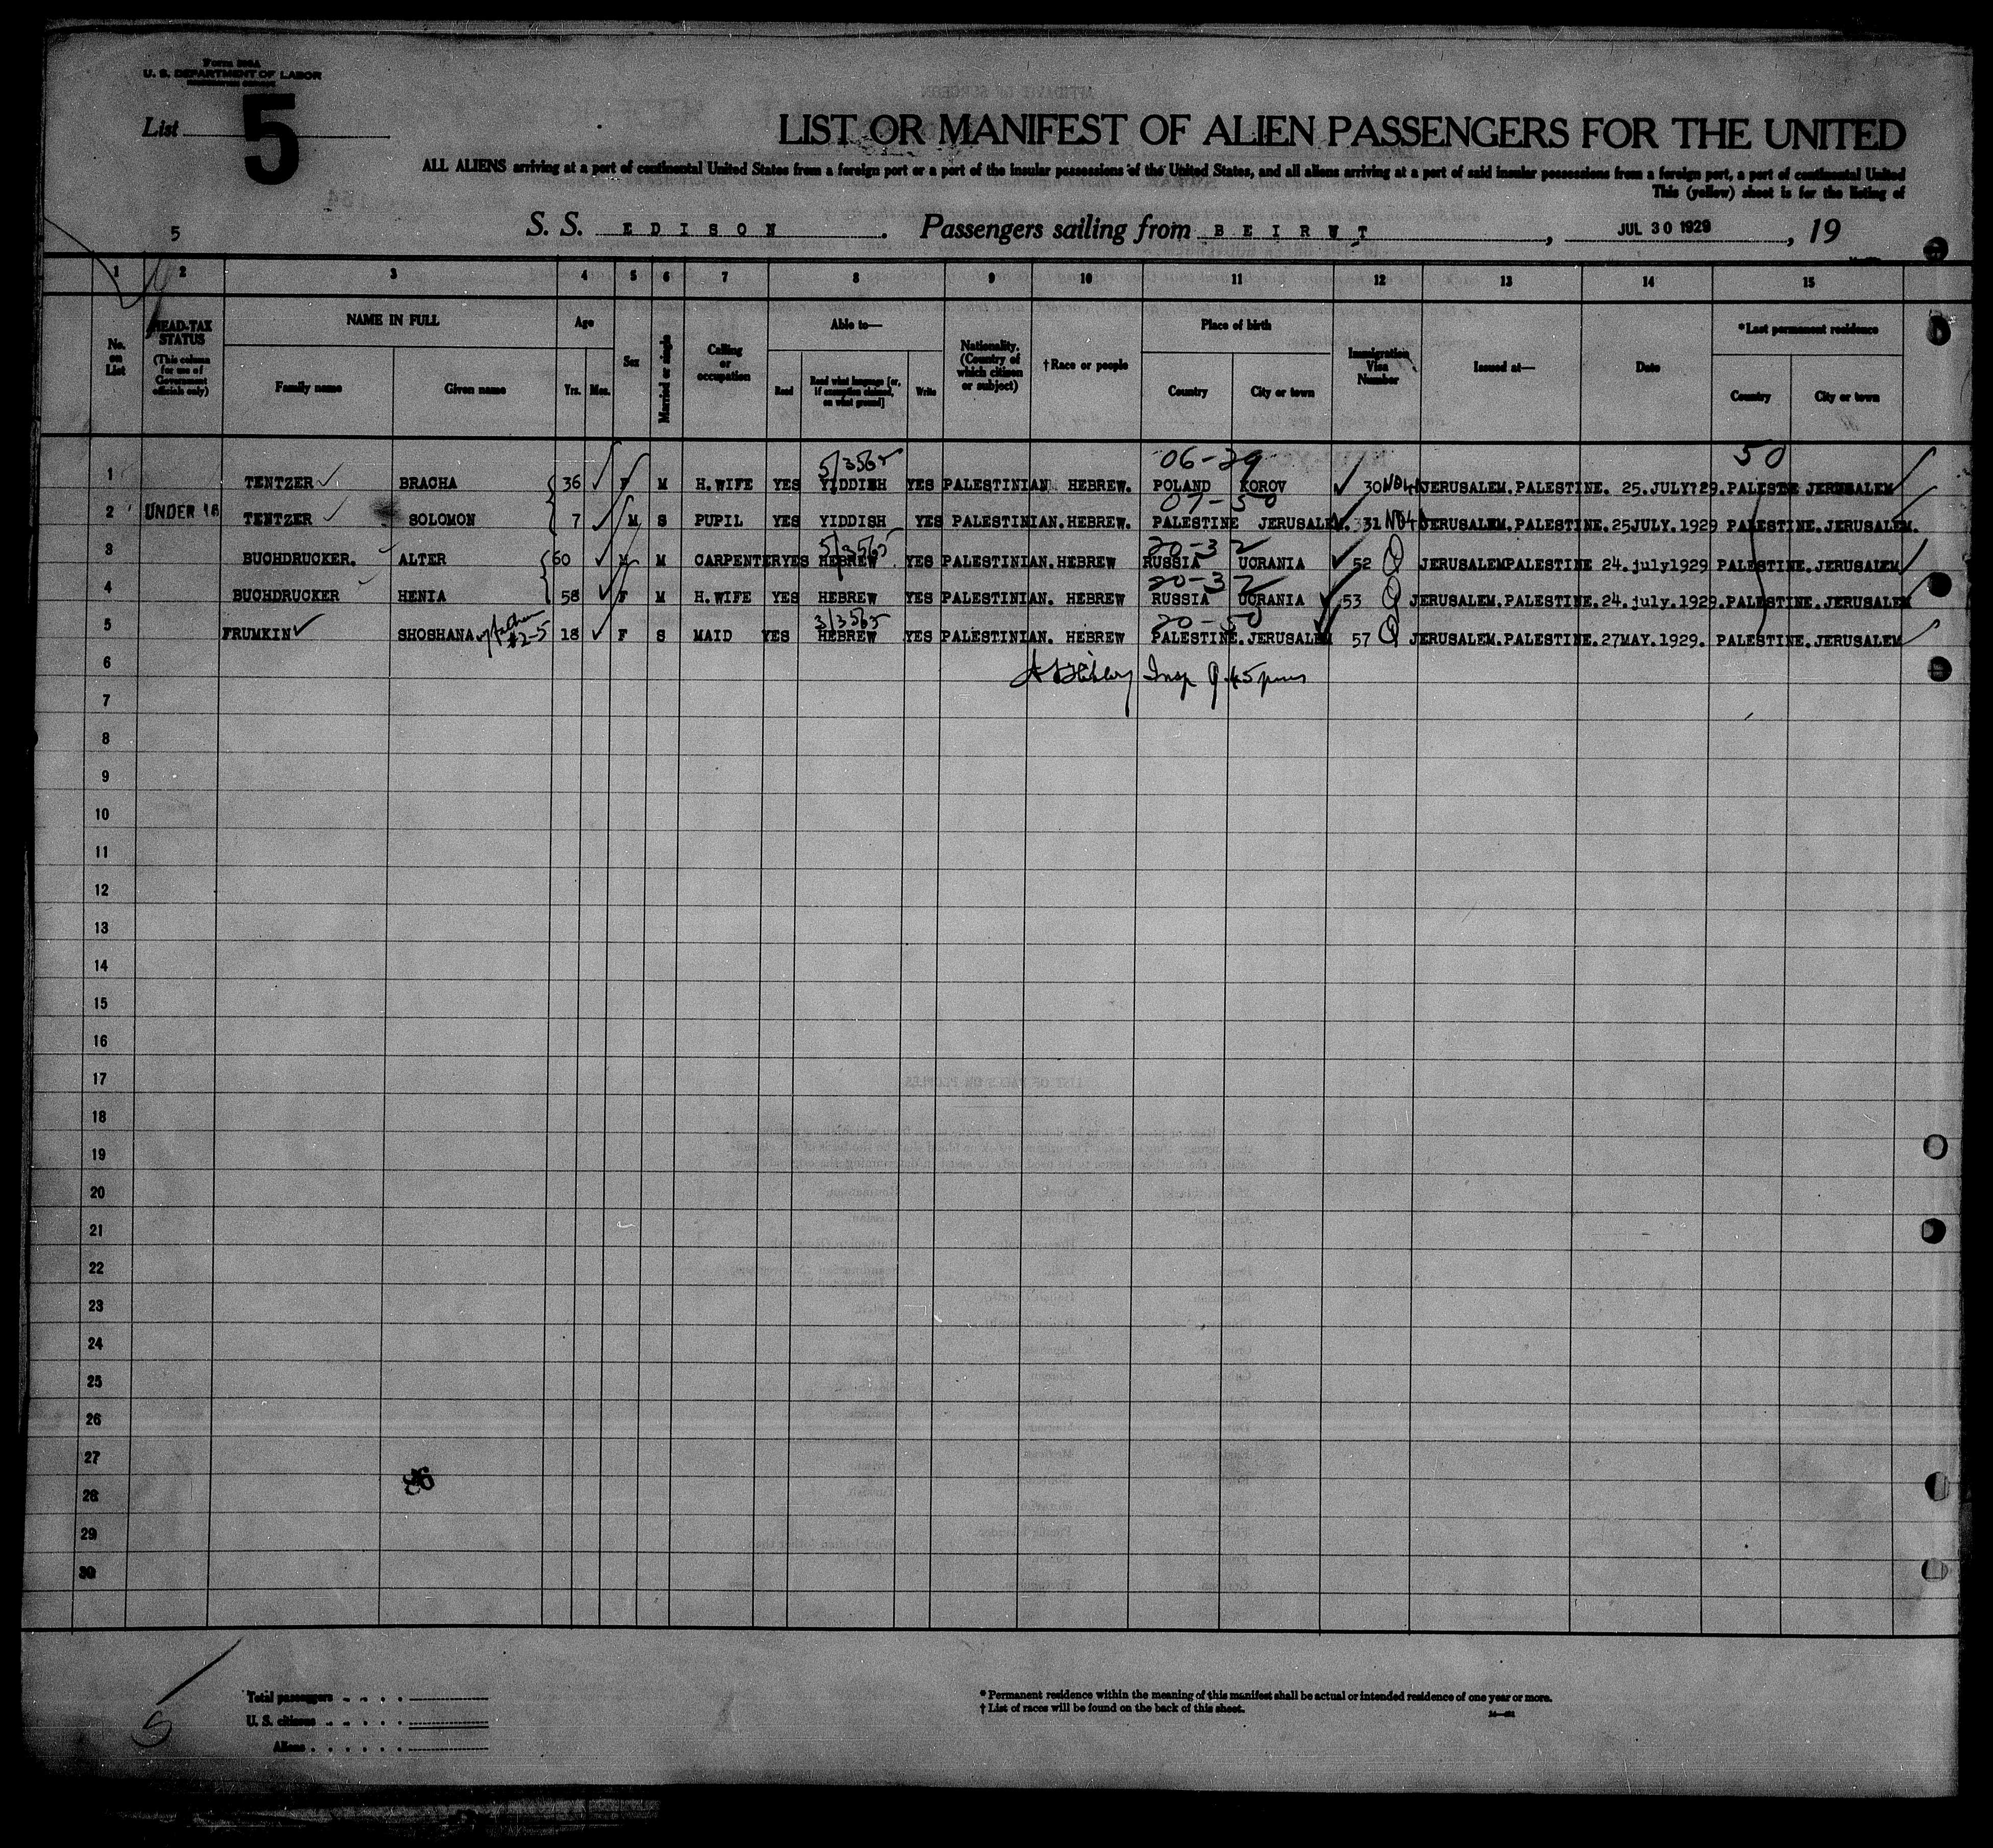 Form 500A
U. S. DEPARTMENT OF LABOR
List 5
LIST OR MANIFEST OF ALIEN PASSENGERS FOR THE UNITED
ALL ALIENS arriving at a port of continental United States from a foreign port or a port of the insular possessions of the United States, and all aliens arriving at a port of said insular possessions from a foreign port, a port of continental United
This (yellow) sheet is for the listing of
5 S. S. EDISON . Passengers sailing from BEIRUT , JUL 30 1929 , 19
1 2 3 4 5 6 7 8 9 10 11 12 13 14 15
No. on List
HEAD-TAX STATUS (This column for use of Government officials only)
NAME IN FULL
Family name Given name
Age
Yrs. Mos.
Sex
Married or single
Calling or occupation
Able to—
Read Read what language [or, if exemption claimed, on what ground] Write
Nationality. (Country of which citizen or subject)
†Race or people
Place of birth
Country City or town
Immigration Visa Number
Issued at—
Date
*Last permanent residence
Country City or town
5/3565 06-29 50
1 TENTZER BRACHA 36 F M H.WIFE YES YIDDISH YES PALESTINIAN HEBREW. POLAND KOROV 30 JERUSALEM.PALESTINE. 25.JULY?29.PALESTINE JERUSALEM
07-50
2 UNDER 16 TENTZER SOLOMON 7 M S PUPIL YES YIDDISH YES PALESTINIAN.HEBREW. PALESTINE JERUSALEM. 331 JERUSALEM.PALESTINE.25JULY.1929 PALESTINE.JERUSALEM.
5/3565 20-32
3 BUCHDRUCKER. ALTER 60 M M CARPENTER YES HEBREW YES PALESTINIAN.HEBREW RUSSIA UCRANIA 52 JERUSALEMPALESTINE 24.july1929 PALESTINE.JERUSALEM
20-32
4 BUCHDRUCKER HENIA 58 F M H.WIFE YES HEBREW YES PALESTINIAN. HEBREW RUSSIA UCRANIA 53 JERUSALEM.PALESTINE.24.july.1929.PALESTINE.JERUSALEM
3/3565 20-50
5 FRUMKIN SHOSHANA father #2-5 18 F S MAID YES HEBREW YES PALESTINIAN. HEBREW PALESTINE.JERUSALEM 57 JERUSALEM.PALESTINE.27MAY.1929. PALESTINE.JERUSALEM
6 Insp 9.45pm
7
8
9
10
11
12
13
14
15
16
17
18
19
20
21
22
23
24
25
26
27
28
29
30
5
Total passengers
U. S. citizens
Aliens
* Permanent residence within the meaning of this manifest shall be actual or intended residence of one year or more.
† List of races will be found on the back of this sheet.